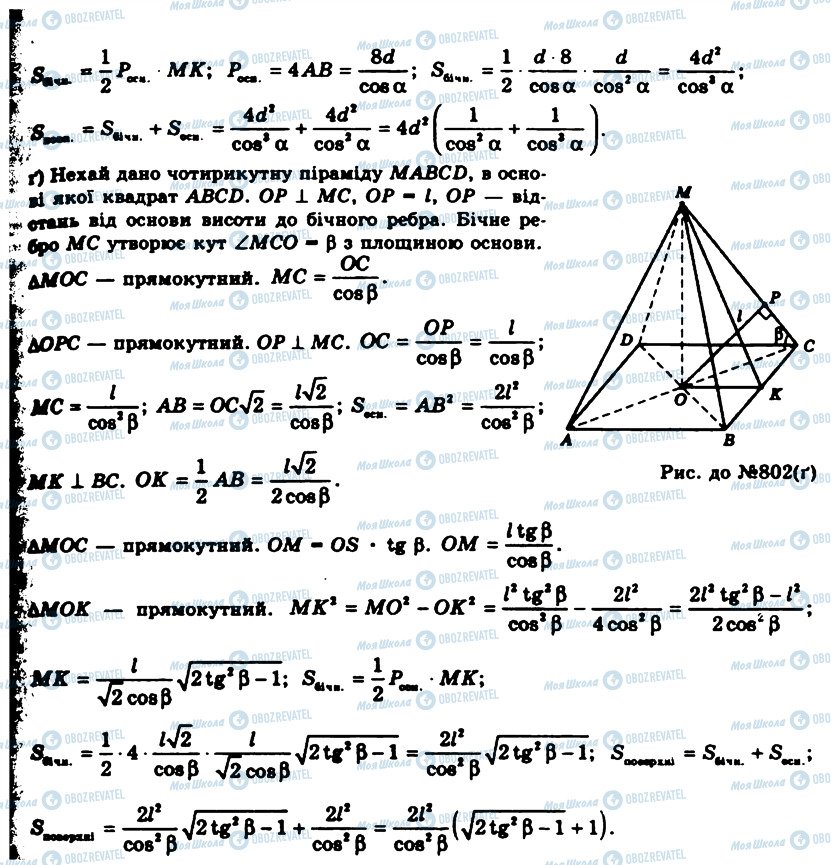 S_бічн. = 1/2 P_осн. · MK; P_осн. = 4AB = 8d/cos α; S_бічн. = 1/2 · d·8/cos α · d/cos² α = 4d²/cos³ α;
S_повн. = S_бічн. + S_осн. = 4d²/cos³ α + 4d²/cos² α = 4d² (1/cos² α + 1/cos³ α).
ґ) Нехай дано чотирикутну піраміду MABCD, в осно-
ві якої квадрат ABCD. OP ⊥ MC, OP = l, OP — від-
стань від основи висоти до бічного ребра. Бічне ре-
бро MC утворює кут ∠MCO = β з площиною основи.
ΔMOC — прямокутний. MC = OC/cos β.
ΔOPC — прямокутний. OP ⊥ MC. OC = OP/cos β = l/cos β;
MC = l/cos² β; AB = OC√2 = l√2/cos β; S_осн. = AB² = 2l²/cos² β;
MK ⊥ BC. OK = 1/2 AB = l√2/2 cos β.
M
P
l
D
β
C
O
K
A
B
Рис. до №802(ґ)
ΔMOC — прямокутний. OM = OS · tg β. OM = l tg β/cos β.
ΔMOK — прямокутний. MK² = MO² − OK² = l² tg² β/cos² β − 2l²/4 cos² β = 2l² tg² β − l²/2 cos² β;
MK = l/√2 cos β √(2 tg² β − 1); S_бічн. = 1/2 P_осн. · MK;
S_бічн. = 1/2 · 4 · l√2/cos β · l/√2 cos β √(2 tg² β − 1) = 2l²/cos² β √(2 tg² β − 1); S_поверхні = S_бічн. + S_осн.;
S_поверхні = 2l²/cos² β √(2 tg² β − 1) + 2l²/cos² β = 2l²/cos² β (√(2 tg² β − 1) + 1).
Моя Школа OBOZREVATEL